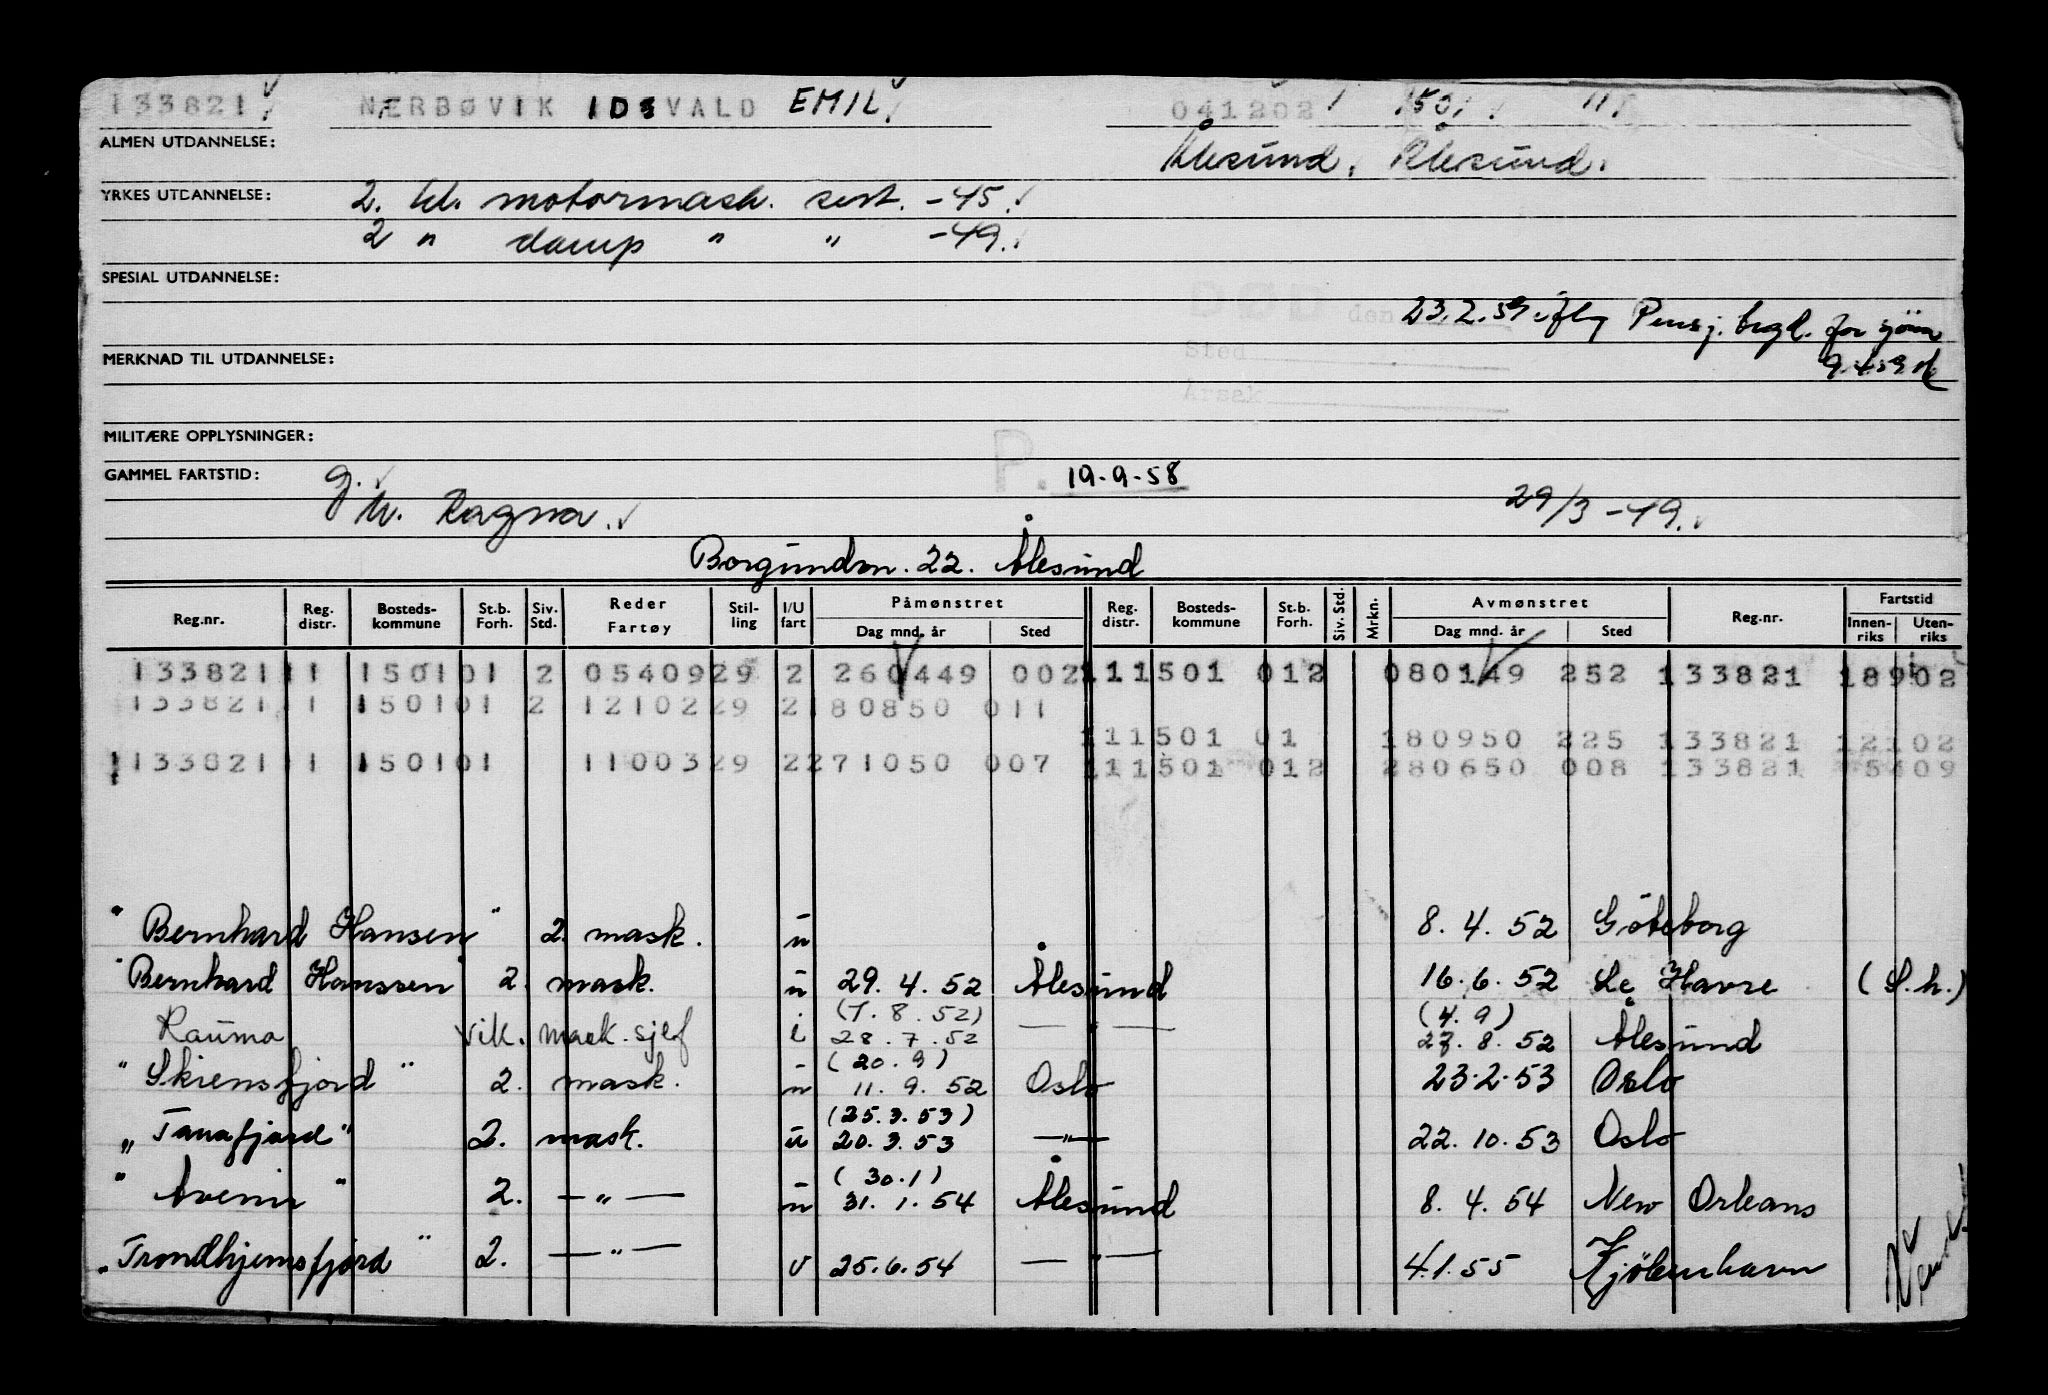 133821 NÆRBØVIK IDSVALD EMIL 041202 1501 11
ALMEN UTDANNELSE: Ålesund. Ålesund.
YRKES UTDANNELSE: 2. kl. motormask. sert. -45.
2 " damp " " -49.
SPESIAL UTDANNELSE:
DØD den 23.2.59 iflg Pensj. for sjøm
Sted
MERKNAD TIL UTDANNELSE: 9.4.59
Årsak
MILITÆRE OPPLYSNINGER:
P. 19-9-58
GAMMEL FARTSTID: g.
M. Ragna. 29/3 -49.
Borgundvn. 22. Ålesund
Reg.nr. Reg. distr. Bosteds-kommune St.b. Forh. Siv. Std. Reder Fartøy Stil-ling I/U fart Påmønstret Dag mnd. år Sted Reg. distr. Bosteds-kommune St.b. Forh. Siv. Std. Mrkn. Avmønstret Dag mnd. år Sted Reg.nr. Fartstid Innen-riks Uten-riks
133821 11 1501 01 2 0540929 2 260449 002 11 1501 012 080149 252 133821 18902
133821 11 1501 01 2 1210229 2 180850 011
11 1501 01 180950 225 133821 12102
133821 11 1501 01 1100329 2 271050 007 11 1501 012 280650 008 133821 5409
"Bernhard Hansen" 2. mask. u 8. 4. 52 Göteborg
"Bernhard Hanssen" 2. mask. u 29. 4. 52 Ålesund 16. 6. 52 Le Havre (S.h.)
(7. 8. 52) (4. 9)
Rauma vik. mask. sjef i 28. 7. 52 — " — 27. 8. 52 Ålesund
(20. 9)
"Skiensfjord" 2. mask. u 11. 9. 52 Oslo 23.2.53 Oslo
(25.3.53)
"Tanafjord" 2. mask. u 20. 3. 53 — " — 22. 10. 53 Oslo
(30.1)
"Avenir" 2. — " — u 31. 1. 54 Ålesund 8. 4. 54 New Orleans
"Trondhjemsfjord" 2. — " — u 25. 6. 54 — " — 4.1.55 Kjöbenhavn